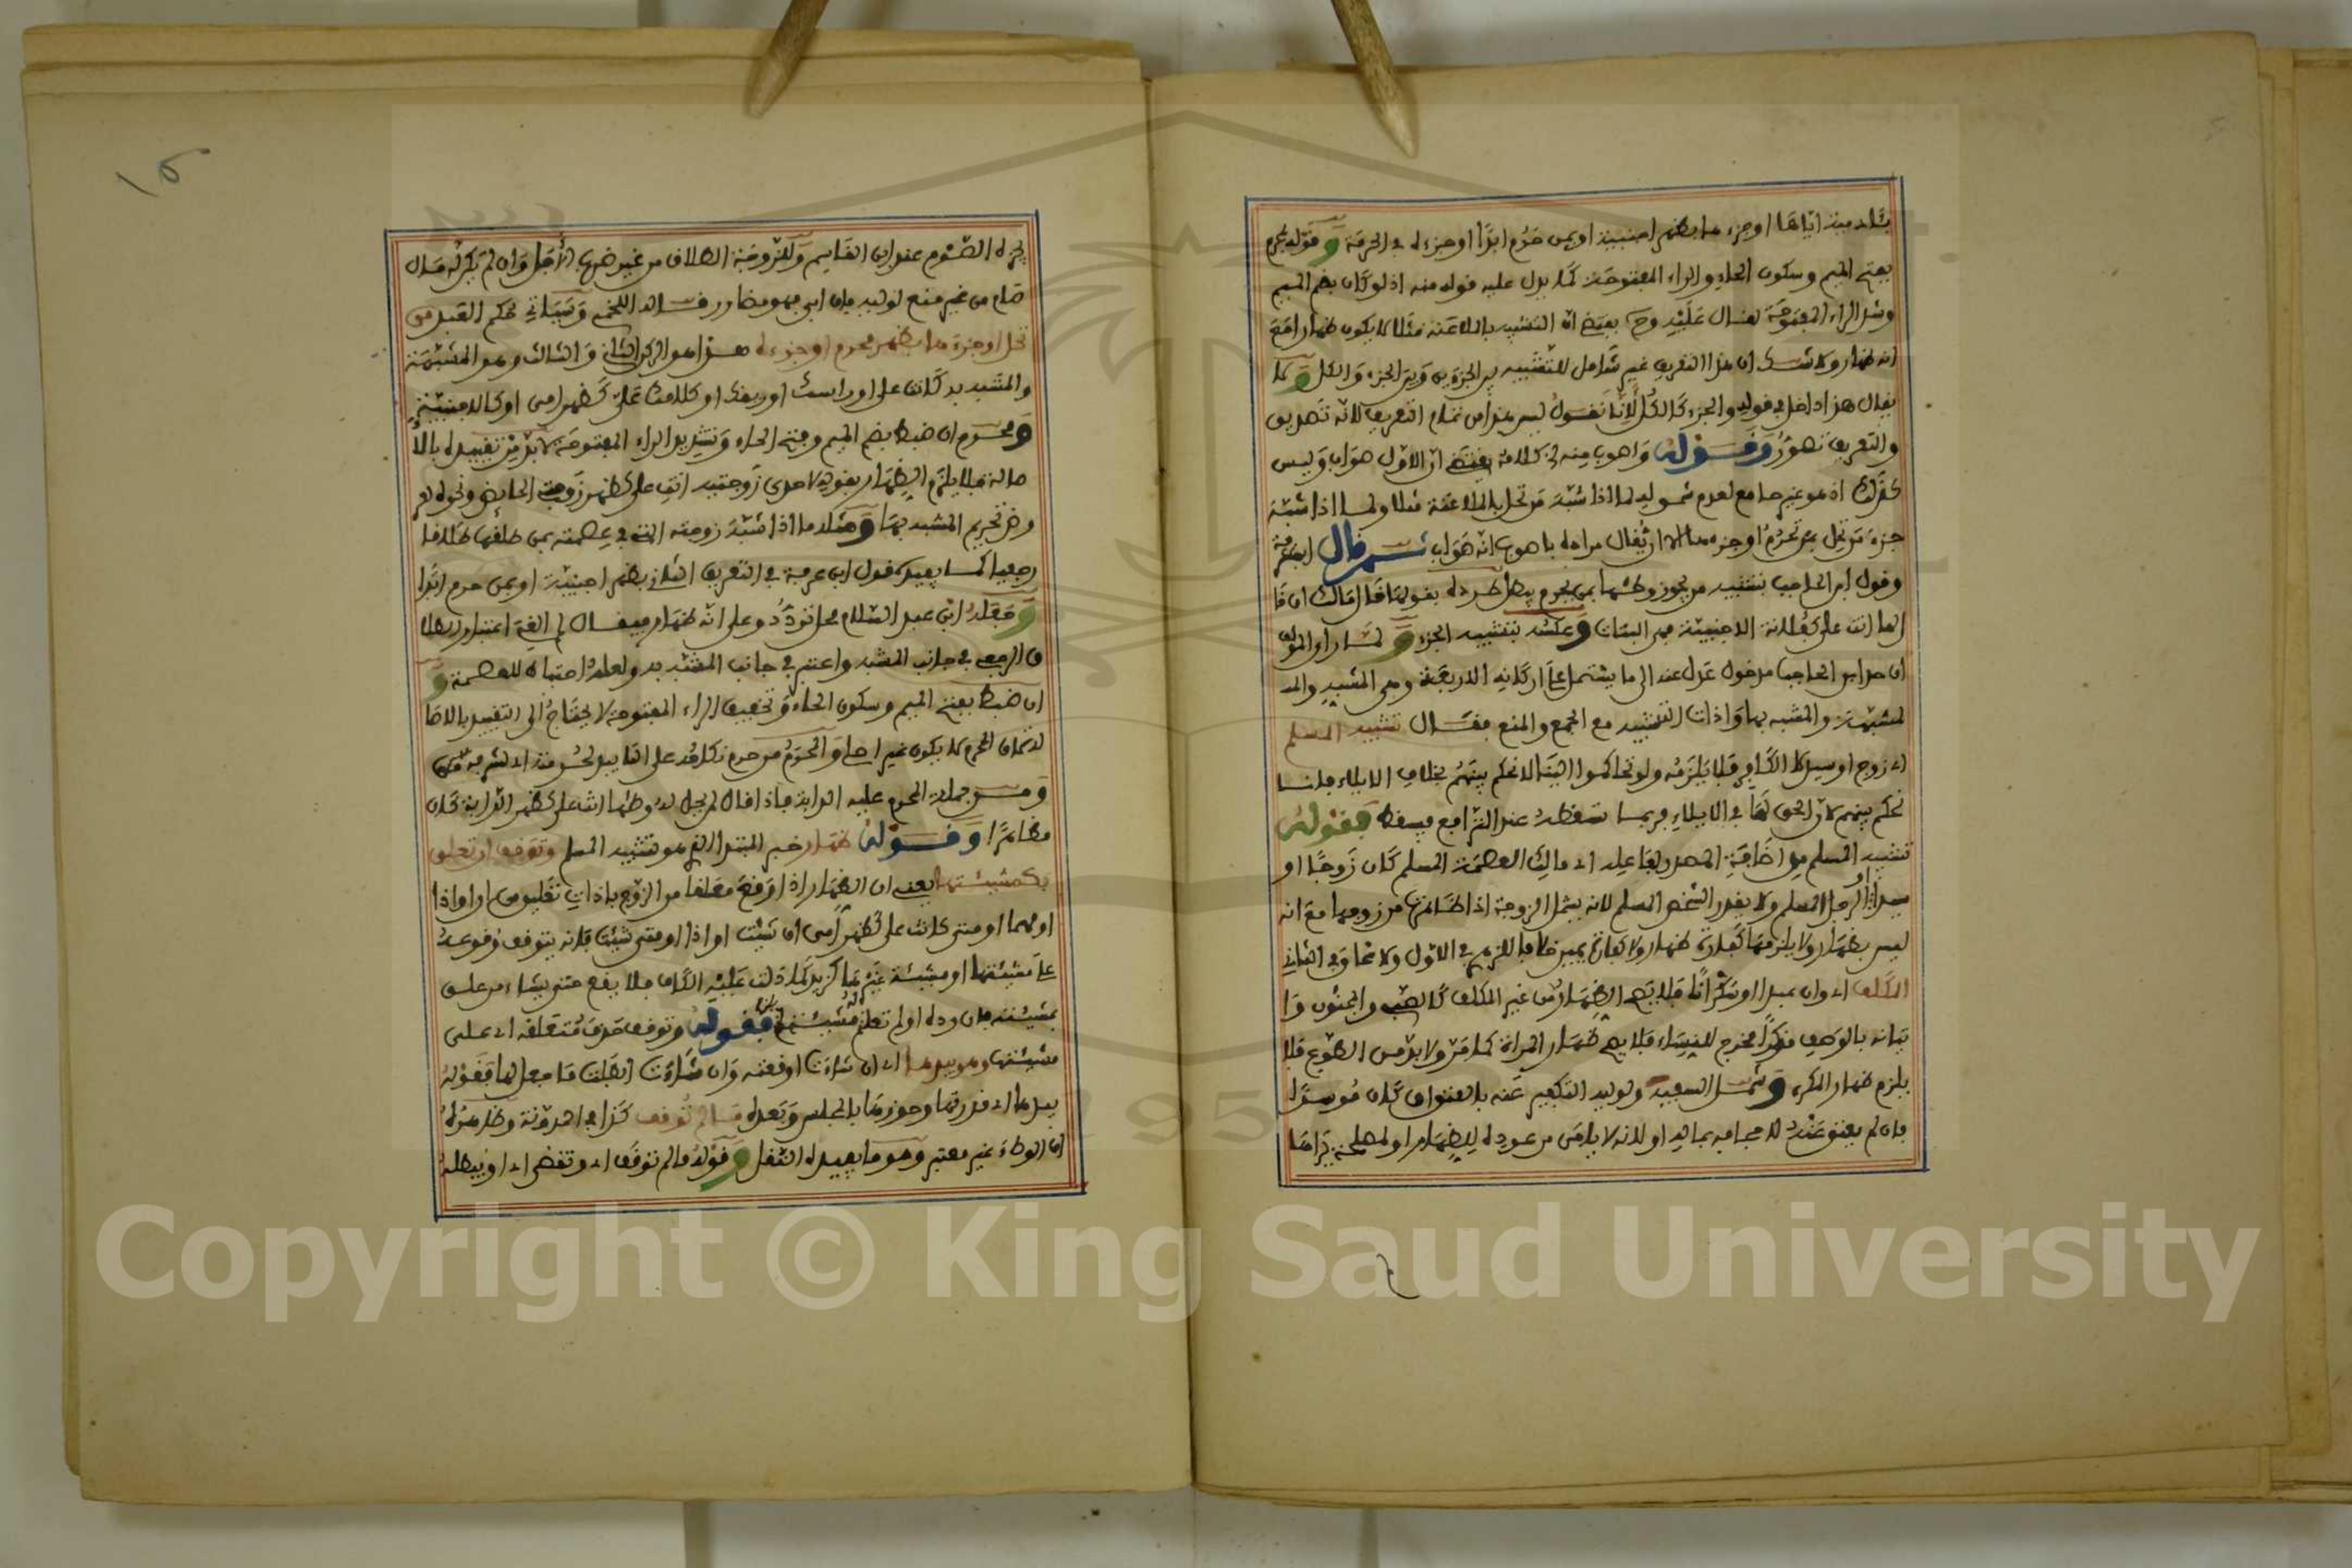 بآدمية اياها او جزءها بظهر اجنبية او بمن حرم ابدا او جزءه في الحرمة وقوله محرم
بفتح الميم وسكون الحاء والراء المفتوحة كما يدل عليه قوله منه اذ لو كان بضم الميم
وشد الراء المفتوحة لقال عليه وح يقتضي ان التشبيه بالملاعنة مثلا لا يكون ظهارا مع
انه ظهار ولا شك ان هذا التعريف غير شامل للتشبيه بين الجزءين وبين الجزء والكل ولا
يقال هذا داخل في قوله والجزء كالكل لانا نقول ليس هذا من تمام التعريف لانه تصديق
والتعريف تصور وقوله واصوب منه في كلامه يقتضي ان الاول صواب وليس
كذلك اذ هو غير جامع لعدم شموله لما اذا شبه من تحل بالملاعنة مثلا ولما اذا شبه
جزء من تحل بمن تحرم او جزءها الا ان يقال مراده باصوب انه صواب ثم قال ابن عرفة
وقول ابن الحاجب تشبيه من يجوز وطئها بمن يحرم يبطل طرده بقولها قال مالك ان قا
ل لها انت علي كفلانة الاجنبية فهي البتات وعكسه بتشبيه الجزء ولما راى المولف
ان حد ابن الحاجب مدخول عدل عنه الى ما يشتمل على اركانه الاربعة وهي المشبه والمـ
لمشبهة والمشبه بها واداة التشبيه مع الجمع والمنع فقال تشبيه المسلم
اي زوج او سيد لا الكافر فلا يلزمه ولو تحاكموا الينا لا نحكم بينهم بخلاف الايلاء فاننا
نحكم بينهم لان الحق لها في الايلاء فربما تسقطه عند الترافع فيسقط فقوله
تشبيه المسلم من اضافة المصدر لفاعله اي مالك العصمة المسلم كان زوجا او
سيدا او الرجل المسلم ولا يقدر الشخص المسلم لانه يشمل الزوجة اذا ظاهرت من زوجها مع انه
ليس بظهار ولا يلزمها كفارة ظهار ولا كفارة يمين خلافا للزهري في الاول ولاسحاق في الثاني
المكلف اي وان عبدا او سكرانا فلا يصح الظهار من غير المكلف كالصبي والمجنون وا
تيانه بالوصف مذكرا مخرج للنساء فلا يصح ظهار المراة كما مر ولا بد من الطوع فلا
يلزم ظهار المكره وشمل السفيه ولوليه التكفير عنه بالعتق ان كان موسرا
فان لم يعتق عنه لاجحافه بماله او لانه لا يامن من عوده للظهار او لمصلحة يراها
يجزه الصوم عند ابن القاسم وللزوجة الطلاق من غير ضرب الاجل وان لم يكن له مال
صام من غير منع لوليه فان ابى فهو مضارر قاله اللخمي وسياتي حكم العبد من
تحل او جزءها بظهر محرم او جزءه هذا هو الركن الثاني والثالث وهو المشبهة
والمشبه به كانت علي او راسك او ريقك او كلامك علي كظهر امي او كالاجنبية
ومحرم ان ضبط بضم الميم وفتح الحاء وتشديد الراء المفتوحة لا بد من تقييده بالا
صالة فلا يلزم الظهار بقوله لاحدى زوجتيه انت علي كظهر زوجتي الحائض ونحوه لعر
وض تحريم المشبه بها ومثله ما اذا شبه زوجته التي في عصمته بمن طلقها طلاقا
رجعيا كما يفيده قول ابن عرفة في التعريف الثاني بظهر اجنبية او بمن حرم ابدا
وجعله ابن عبد السلام محل تردد وعلى انه ظهار فيقال لم الغي اعتبار الطلا
ق الرجعي في جانب المشبه واعتبر في جانب المشبه به ولعله احتياط للعصمة و
ان ضبط بفتح الميم وسكون الحاء وتخفيف الراء المفتوحة لا يحتاج الى التقييد بالاصا
لة لان المحرم لا يكون غير اصلي والمحرم من حرم نكاحه على التابيد لحرمته اي لشرفه
ومن جملة المحرم عليه الدابة فاذا قال لمن يحل له وطئها انت علي كظهر الدابة كان
مظاهرا وقوله ظهار خبر المبتدا الذي هو تشبيه المسلم وتوقف ان تعلق
بكمشيئتها يعني ان الظهار اذا وقع معلقا من الزوج باداة تعليق من ان او اذا
او مهما او متى كانت علي كظهر امي ان شئت او اذا او متى شئت فانه يتوقف وقوعه
على مشيئتها او مشيئة غيرها كزيد كما دلت عليه الكاف فلا يقع حتى يشاء من علق
بمشيئته فان رده او لم تعلم مشيئته فقوله وتوقف حذف متعلقه اي على
مشيئتها وهو بيدها اي ان شاءت اوقعته وان شاءت ابطلت ما جعل لها فقوله
بيدها اي في قدرتها وحوزها بالمجلس وبعده ما لم توقف كذا في المدونة وظاهره
ان الوطء غير معتبر وهو ما يفيده النقل وقوله ما لم توقف اي وتقضي اي او يبطله
Copyright © King Saud University